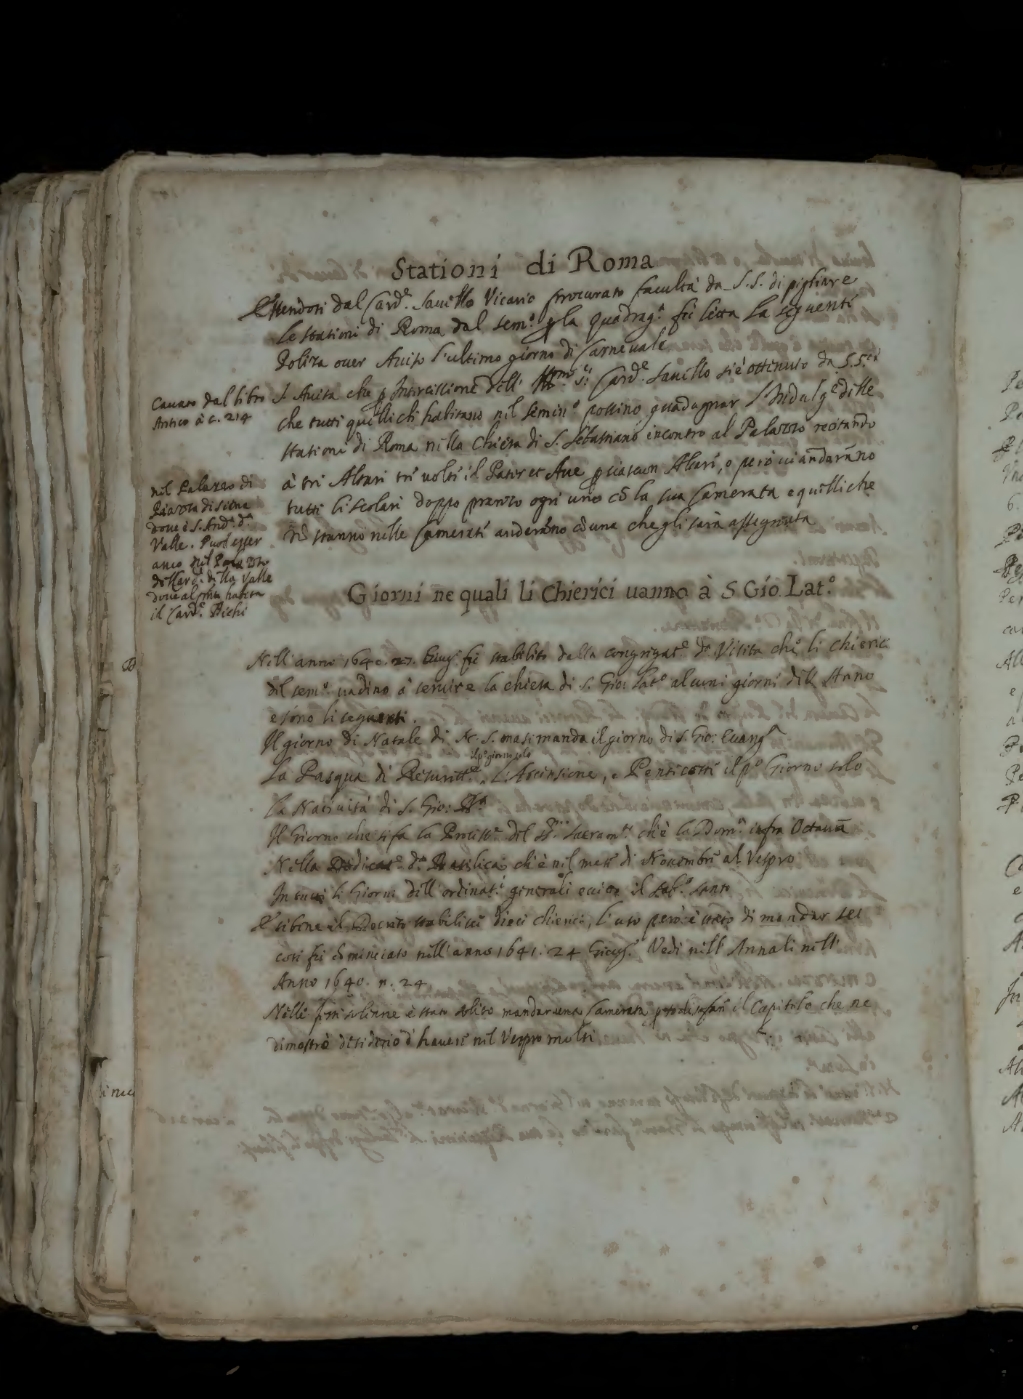 Stationi di Roma
Essendosi dal Card.e Savello Vicario procurato facultà da S.S. di pigliare
le stationi di Roma dal sem.o p la quadrag.a fu letta la seguente
Poliza over Aviso l'ultimo giorno di Carnevale
Cavato dal libro
Antico à c. 214
S'Avisa che p Intercessione dell' Em.mo S.r Card.e Savello si è ottenuto da S.S.tà
che tutti quelli ch' habitano nel Semin.o possino guadagnar l'Indulg.e delle
stationi di Roma nella Chiesa di S. Sebastiano incontro al Palazzo recitando
à tre Altari tre volte il Pater et Ave p ciascun Altare, e però ci anderanno
tutti li scolari doppo pranzo ogni uno cō la sua Camerata e quelli che
nō stanno nelle Camerate anderāno cō una che gli sarà assegnata
nel Palazzo di
Piazza di Siena
dove è S. And.a d.a
Valle. Puol esser
anco nel Palazzo
della Valle
dove al pnte habita
il Card.e Bichi
Giorni ne quali li Chierici vanno à S. Gio. Lat.o
Nell'anno 1640. 27. Giug.o fu stabilito dalla congregat.e d.a Visita che li chierici
del sem.o vadino à servire la chiesa di S. Gio: Lat.o alcuni giorni dell'Anno
e sono li seguenti.
Il giorno di Natale di N.S. ma si manda il giorno di S. Gio: Evang.a
La Pasqua di Resurett.e, l'Ascensione, e Pentecoste il p.o Giorno solo
il p.o giorno solo
La Natività di S. Gio: Bta
Il Giorno che si fa la Process.e del SS.mo Sacram.to ch'è la Dom.a infra Octavā
Nella Dedicat.e d.a Basilica ch'è nel mese di Novembre al Vespro
In tutti li Giorni dell'ordinat.i generali eccetto il Sab.o santo
E sibene il Decreto stabilisce dieci chierici, l'uso però è stato di mandar sei
così fu cōminciato nell'anno 1641. 24 Giug.o Vedi nell'Annali nell'
Anno 1640. n. 24
Nelle feste solenne è stato solito mandar una Camerata il Capitolo che ne
dimostrò desiderio d'havere nel Vespro molti